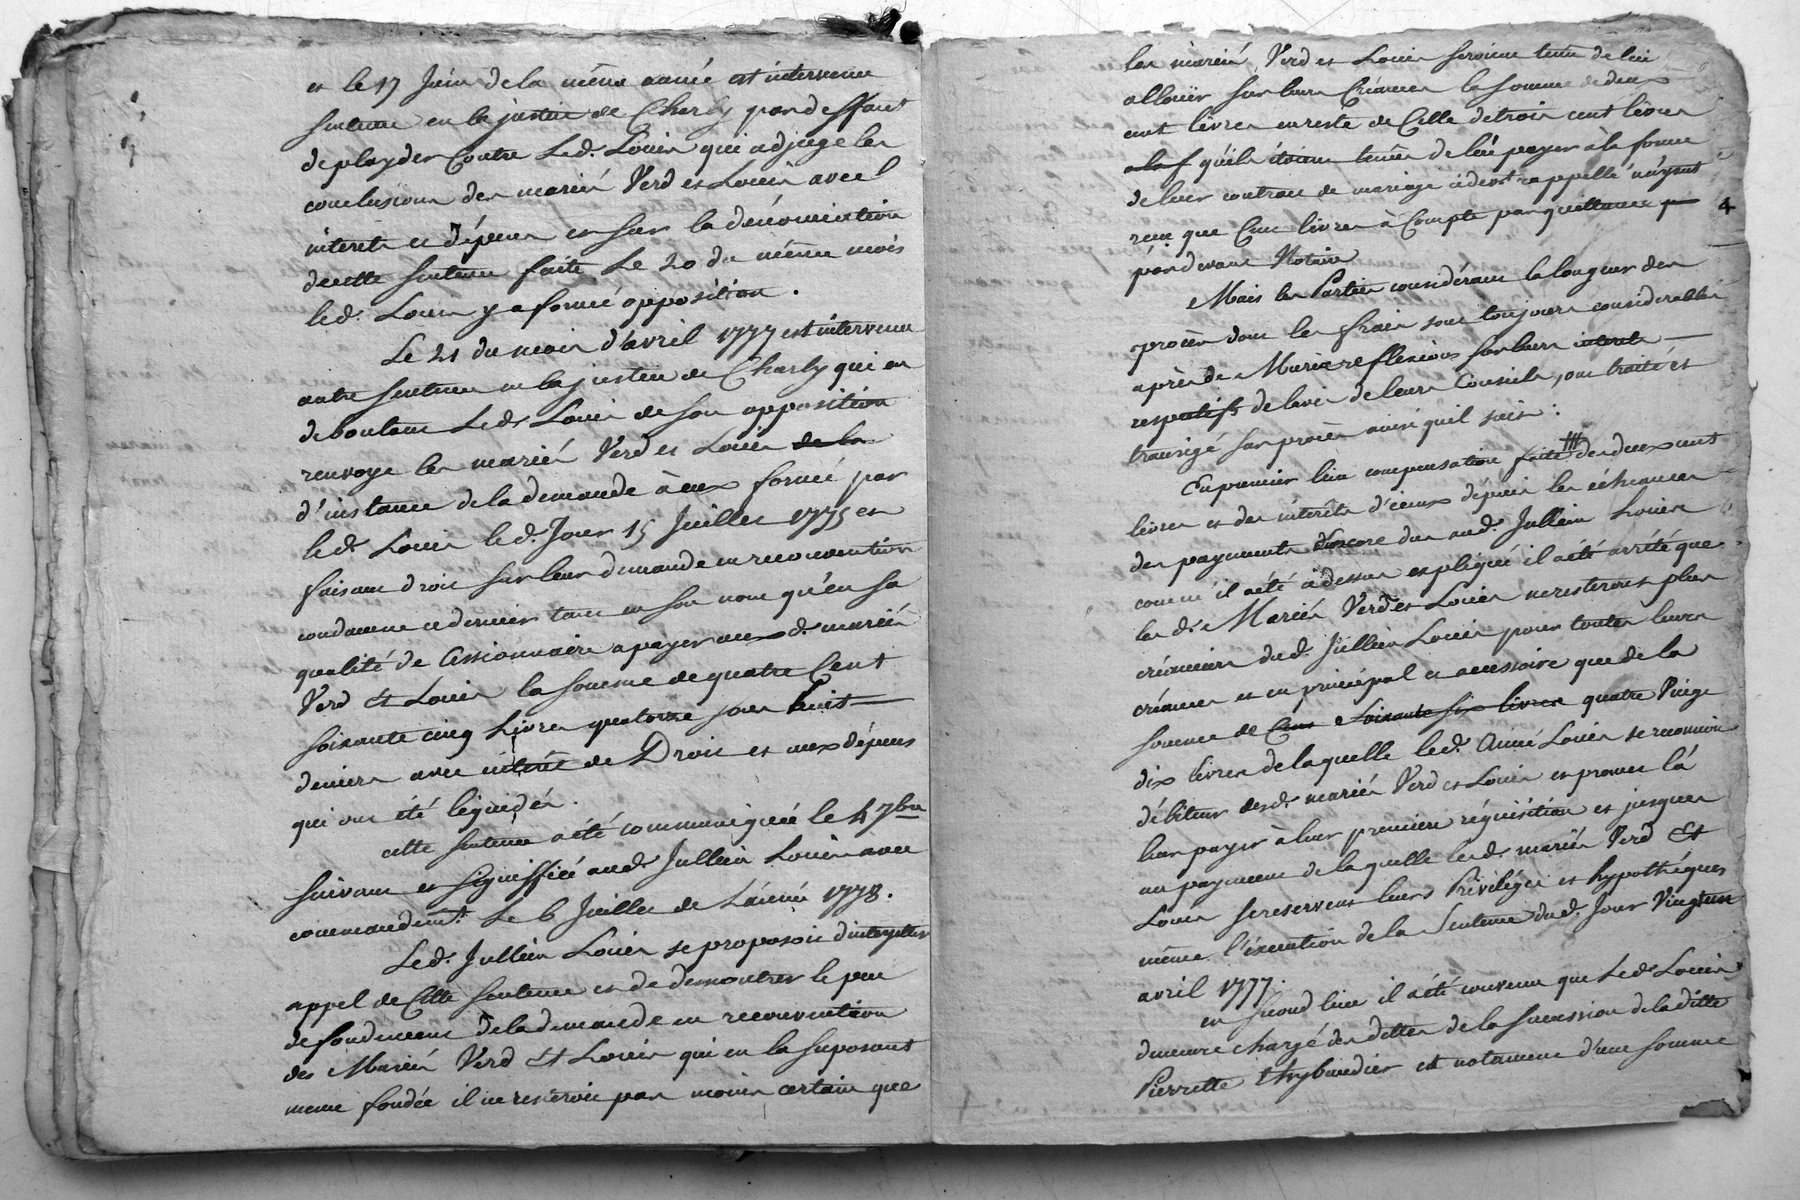 et le 17 Juin de la même année est intervenue
sentence en la justice de Charly par deffaut
de playder Contre Led. Louis qui adjuge les
conclusions des mariés Verd et Louis avec
interets et dépens et sur la dénonciation
de cette sentence faite Le 20 du même mois
led. Louis y a formé opposition.
Le 21 du mois d'avril 1777 est intervenue
autre sentence en la justice de Charly qui en
deboutant Led. Louis de son opposition
renvoye les mariés Verd et Louis de la
d'instance de la demande à eux formée par
led. Louis led. Jour 15 Juillet 1775 et
faisant droit sur leur demande en reconvention
condamne ce dernier tant en son nom qu'en sa
qualité de Cessionnaire a payer aux d. mariés
Verd Et Louis la somme de quatre Cent
soixante cinq Livres quatorze sous huit
deniers avec intérêts de Droit et aux dépens
qui ont été liquidés.
cette sentence a été communiquée le 4 7bre
suivant et signiffiée aud. Jullien Louis avec
commandemt. Le 6 Juillet de L'année 1778.
Led. Jullien Louis se proposoit d'interjetter
appel de Cette sentence et de demontrer le peu
de fondement de la demande en reconvention
des Mariés Verd Et Louis qui en la suposant
meme fondée il ne resteroit pas moins certain que
les mariés Verd et Louis seroient tenus de lui
allouer sur leurs Créances la somme de deux
cent livres en reste de Celle de trois cent livres
qu'ils étoient tenus de lui payer à la forme
de leur contrat de mariage cidevt rappellé n'ayant
reçu que Cent livres à Compte par quittance
pardevant Notaire
Mais les Parties considérant la longueur des
procès dont les frais sont toujours considerables
après de Mures reflexions sur leurs interets
respectifs de l'avis de leurs Conseils, ont traité et
transigé sur procès ainsi qu'il suit:
En premier lieu compensation faite des deux cent
livres et des intérêts d'iceux dépuis les échéances
des payements encore dus aud. Jullien Louis
comme il a été cidessus expliqué il a été arrêté que
les d. Mariés Verd et Louis ne resteront plus
créanciers dud. Jullien Louis pour toutes leurs
créances et en principal et accessoire que de la
somme de Cent Soixante six livres quatre Vingt
dix livres de laquelle led. Aimé Louis se reconnoit
débiteur desd. mariés Verd et Louis et promet la
leur payer à leur premiere réquisition et jusques
au payement de laquelle lesd. mariés Verd Et
Louis se reservent leurs Privilèges et hypothéques
même l'éxecution de la Sentence dud. Jour Vingt un
avril 1777.
en second lieu il a été convenu que Led. Louis
demeure chargé des dettes de la succession de la ditte
Pierrette et notament d'une somme
4